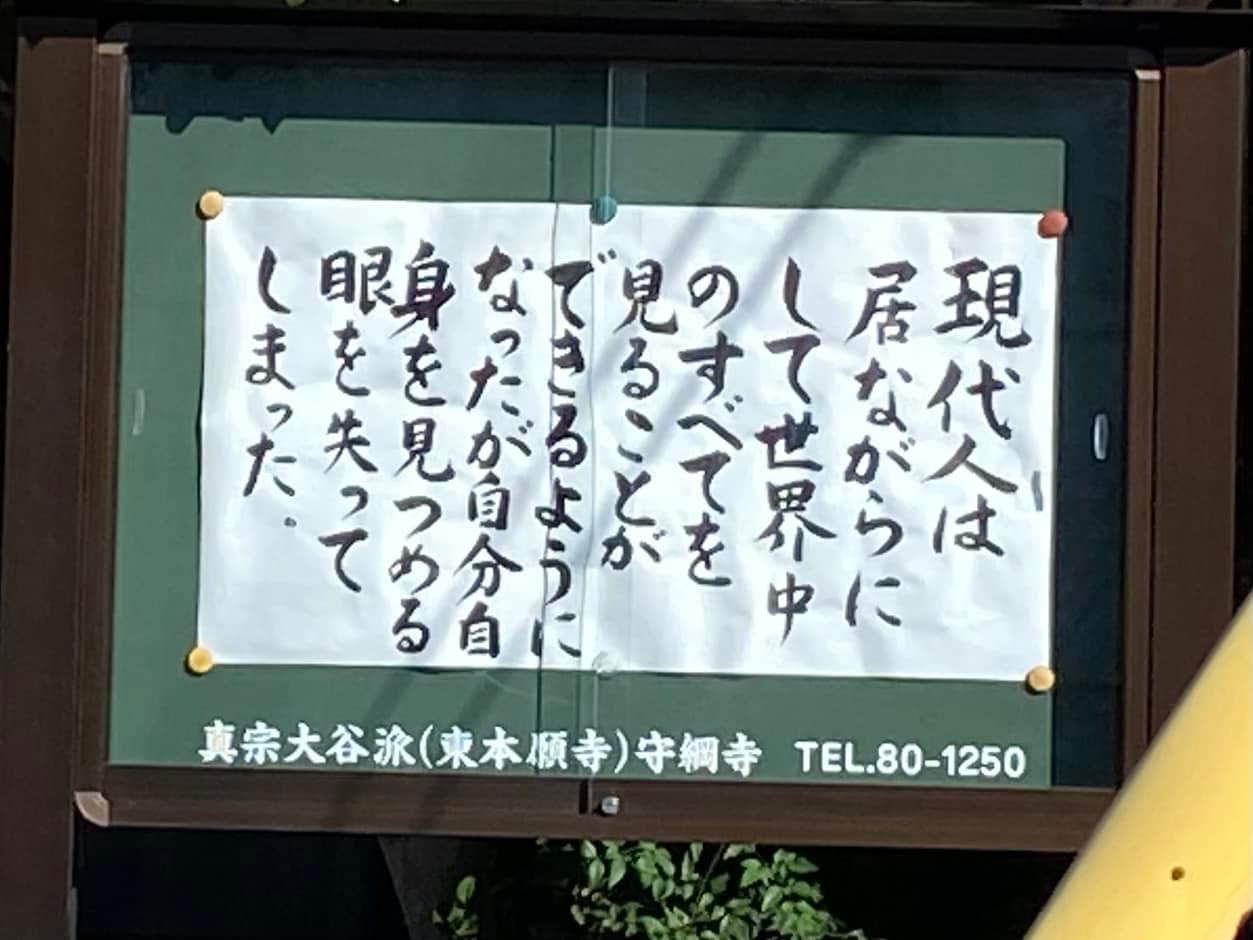 現代人は
居ながらに
して世界中
のすべてを
見ることが
できるように
なったが自分自
身を見つめる
眼を失って
しまった.
真宗大谷派(東本願寺)守綱寺 TEL.80-1250